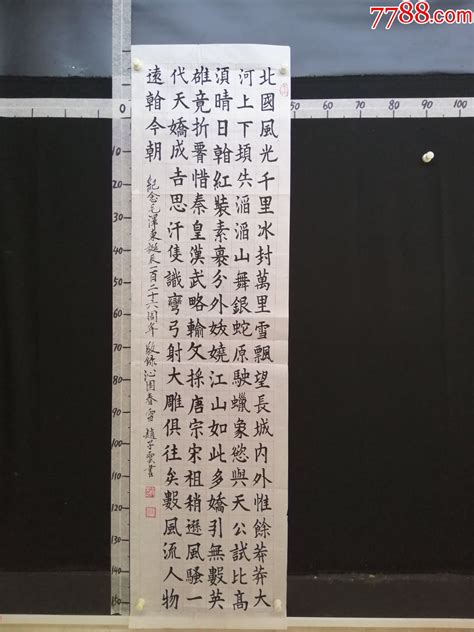 7788.com
北國風光千里冰封萬里雪飄望長城内外惟餘莽莽大
河上下頓失滔滔山舞銀蛇原馳蠟象慾與天公試比高
湏晴日翰紅裝素裹分外妖嬈江山如此多嬌引無數英
雄竞折腰惜秦皇漢武略輸文採唐宗宋祖稍遜風騷一
代天嬌成吉思汗隻識彎弓射大雕俱往矣數風流人物
遠翰今朝
紀念毛澤東誕辰一百二十六周年 敬錄沁園春雪 趙子雲書
50 60 70 80 90 100